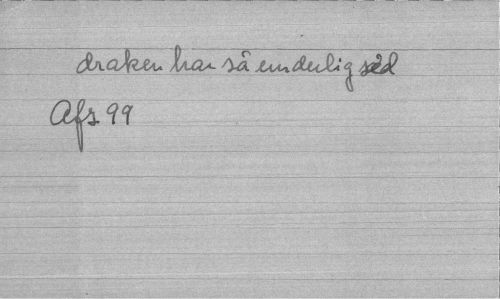 draken har så underlig sed
Afz 99